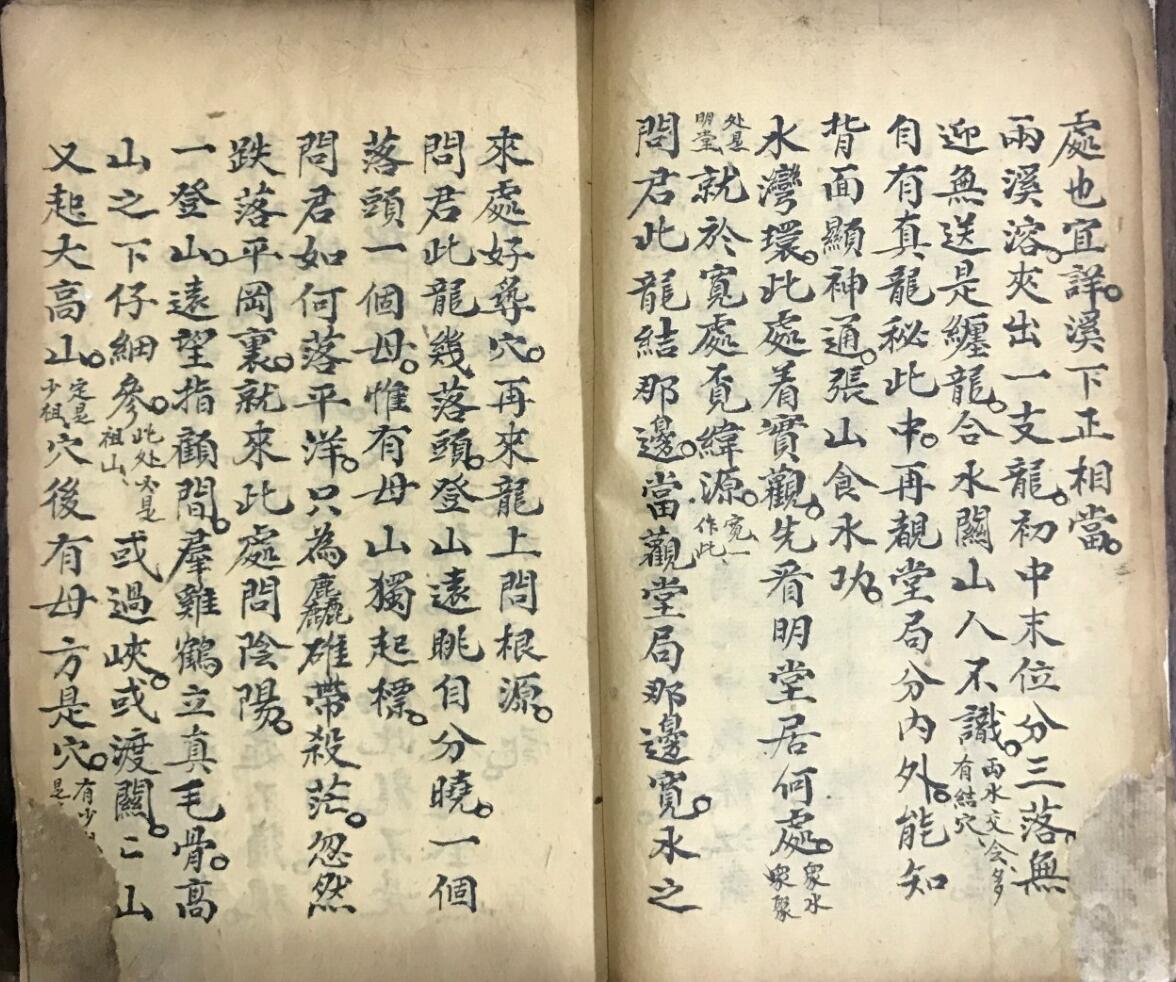 處也宜詳。溪下正相當。
兩溪溶。夾出一支龍。初中末位分三落。無
迎無送是纏龍。合水關山人不識。兩水交会、多有結穴、
自有真龍秘此中。再覩堂局分内外。能知
背面顯神通。張山食水功。
水灣環。此處着實觀。先看明堂居何處。众水聚
处是明堂、就於寬處覓緯源。寬一作此、
問君此龍結那邊。當觀堂局那邊寬。水之
來處好尋穴。再來龍上問根源。
問君此龍幾落頭。登山遠眺自分曉。一個
落頭一個母。惟有母山獨起標。
問君如何落平洋。只為麤雄帶殺茫。忽然
跌落平岡裏。就來此處問陰陽。
一登山。遠望指顧間。羣雞鶴立真毛骨。高
山之下仔細參。此处必是祖山、或過峽。或渡關。亡山
又起大高山。定是少祖、穴後有母方是穴。有少